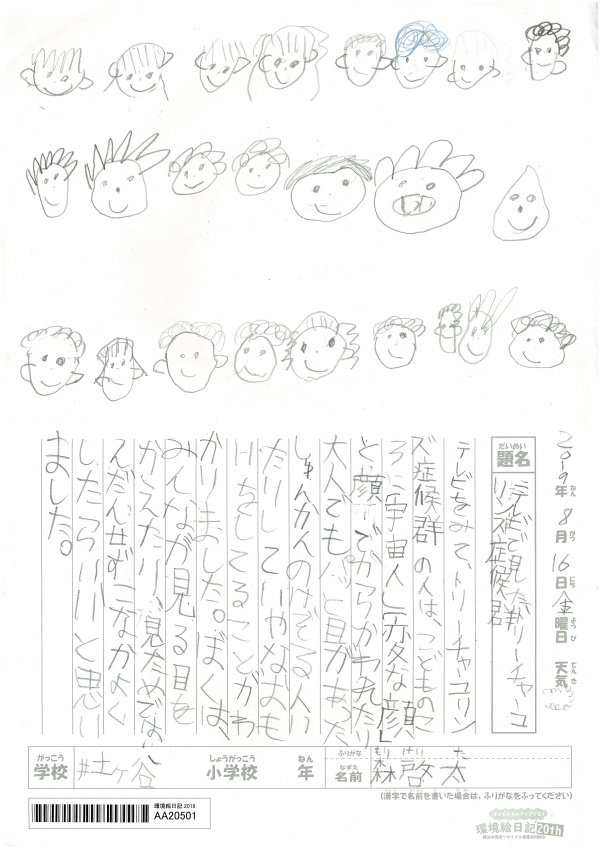 2019年 8月 16日 金曜日 天気
ねん がつ にち ようび てんき
だいめい
題名
テレビで見た、トリーチャーコ
リンズ症候群
テレビをみて、トリーチャーコリン
ズ症候群の人は、こどものこ
ろに「宇宙人」「変な顔」
と顔でからかわれたり
大人でもパッと目があった
しゅんかんのけぞる人い
たりしていやなおも
いをしてることがわ
かりました。ぼくは、
みんなが見る目を
かえたり、見ためでは
んだんせずになかよく
したらいいと思い
ました。
がっこう しょうがっこう ねん
学校 井土ヶ谷 小学校 年
ふりがな もり けい た
なまえ
名前 森 啓 太
(漢字で名前を書いた場合は、ふりがなをふってください)
環境絵日記2019
AA20501
環境絵日記20th